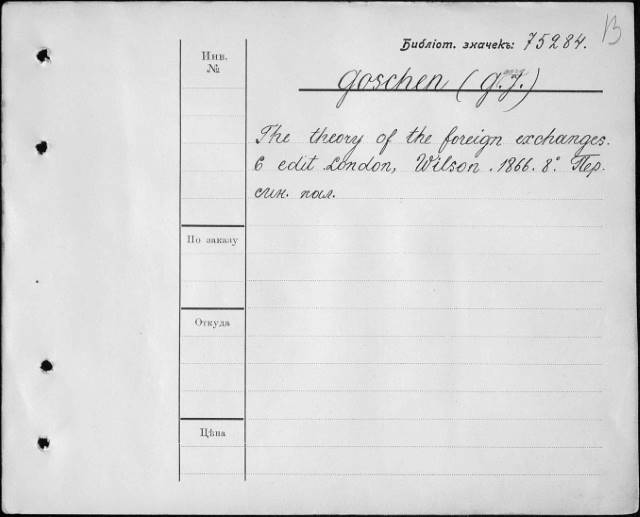 В
Библіот. значекъ: 75284.
Инв.
№
Goschen (G. J.)
The theory of the foreign exchanges.
6 edit London, Wilson. 1866. 8°. Пер.
син. пал.
По заказу
Откуда
Цѣна